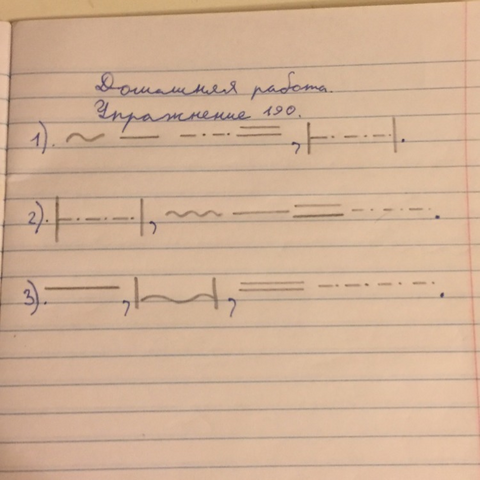 Домашняя работа.
Упражнение 190.
1). , .
2). , .
3). , , .